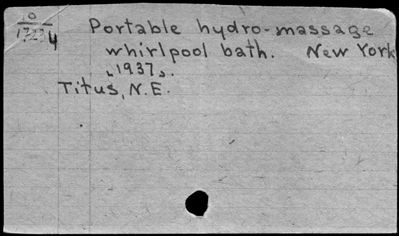 0
Portable hydro-massage
whirlpool bath. New York
1937.
Titus, N.E.